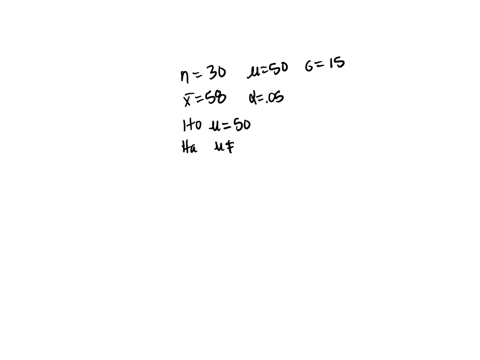 n = 30 μ = 50 σ = 15
x̄ = 58 α = .05
H0 μ = 50
Ha μ ≠